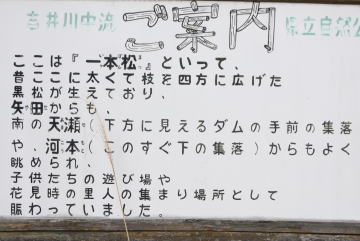 高井川中流 ご案内 県立自然公
ここは『一本松』といって、
昔ここに太くて枝を四方に広げた
黒松が生えており、
矢田からも、
南の天瀬(下方に見えるダムの手前の集落)
や、河本(このすぐ下の集落)からもよく
眺められ、
子供たちの遊び場や
花見時の里人の集まり場所として
賑わっていました。